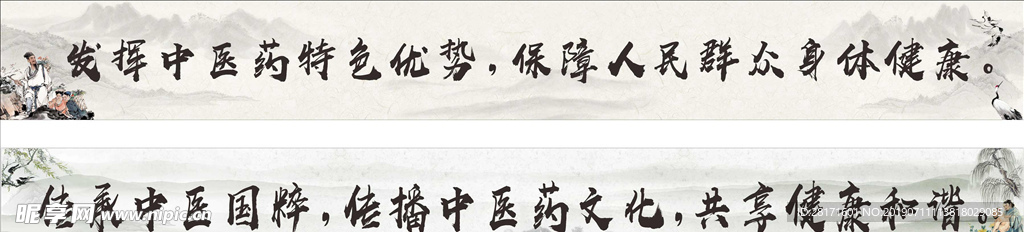 发挥中医药特色优势,保障人民群众身体健康。
传承中医国粹,传播中医药文化,共享健康和谐
昵享网 www.nipic.cn
ID:28171601 NO:20190711113818029085